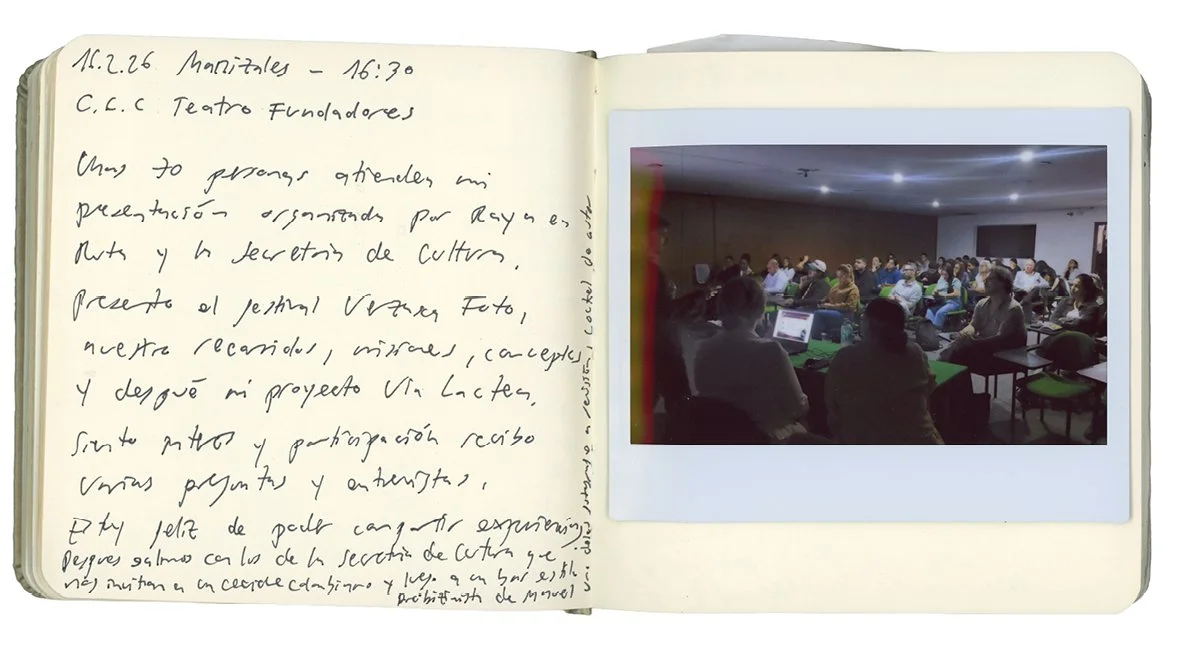 16.2.26 Manizales – 16:30
C.L.C Teatro Fundadores
Unas 70 personas atienden mi
presentación organizada por Raya en
Ruta y la Secretaria de Cultura.
Presento el festival Verzasca Foto,
nuestro recorridos, misiones, conceptos
y despué mi proyecto Via Lactea.
Siento interes y participación recibo
varias preguntas y entrevistas.
Estoy feliz de poder compartir experiencias
Despues salimos con los de la secretaria de Cultura que
nos invitan a un colombiano y luego a un bar estilo
prohibicionista de Manuel
uno de los a cocktel de autor